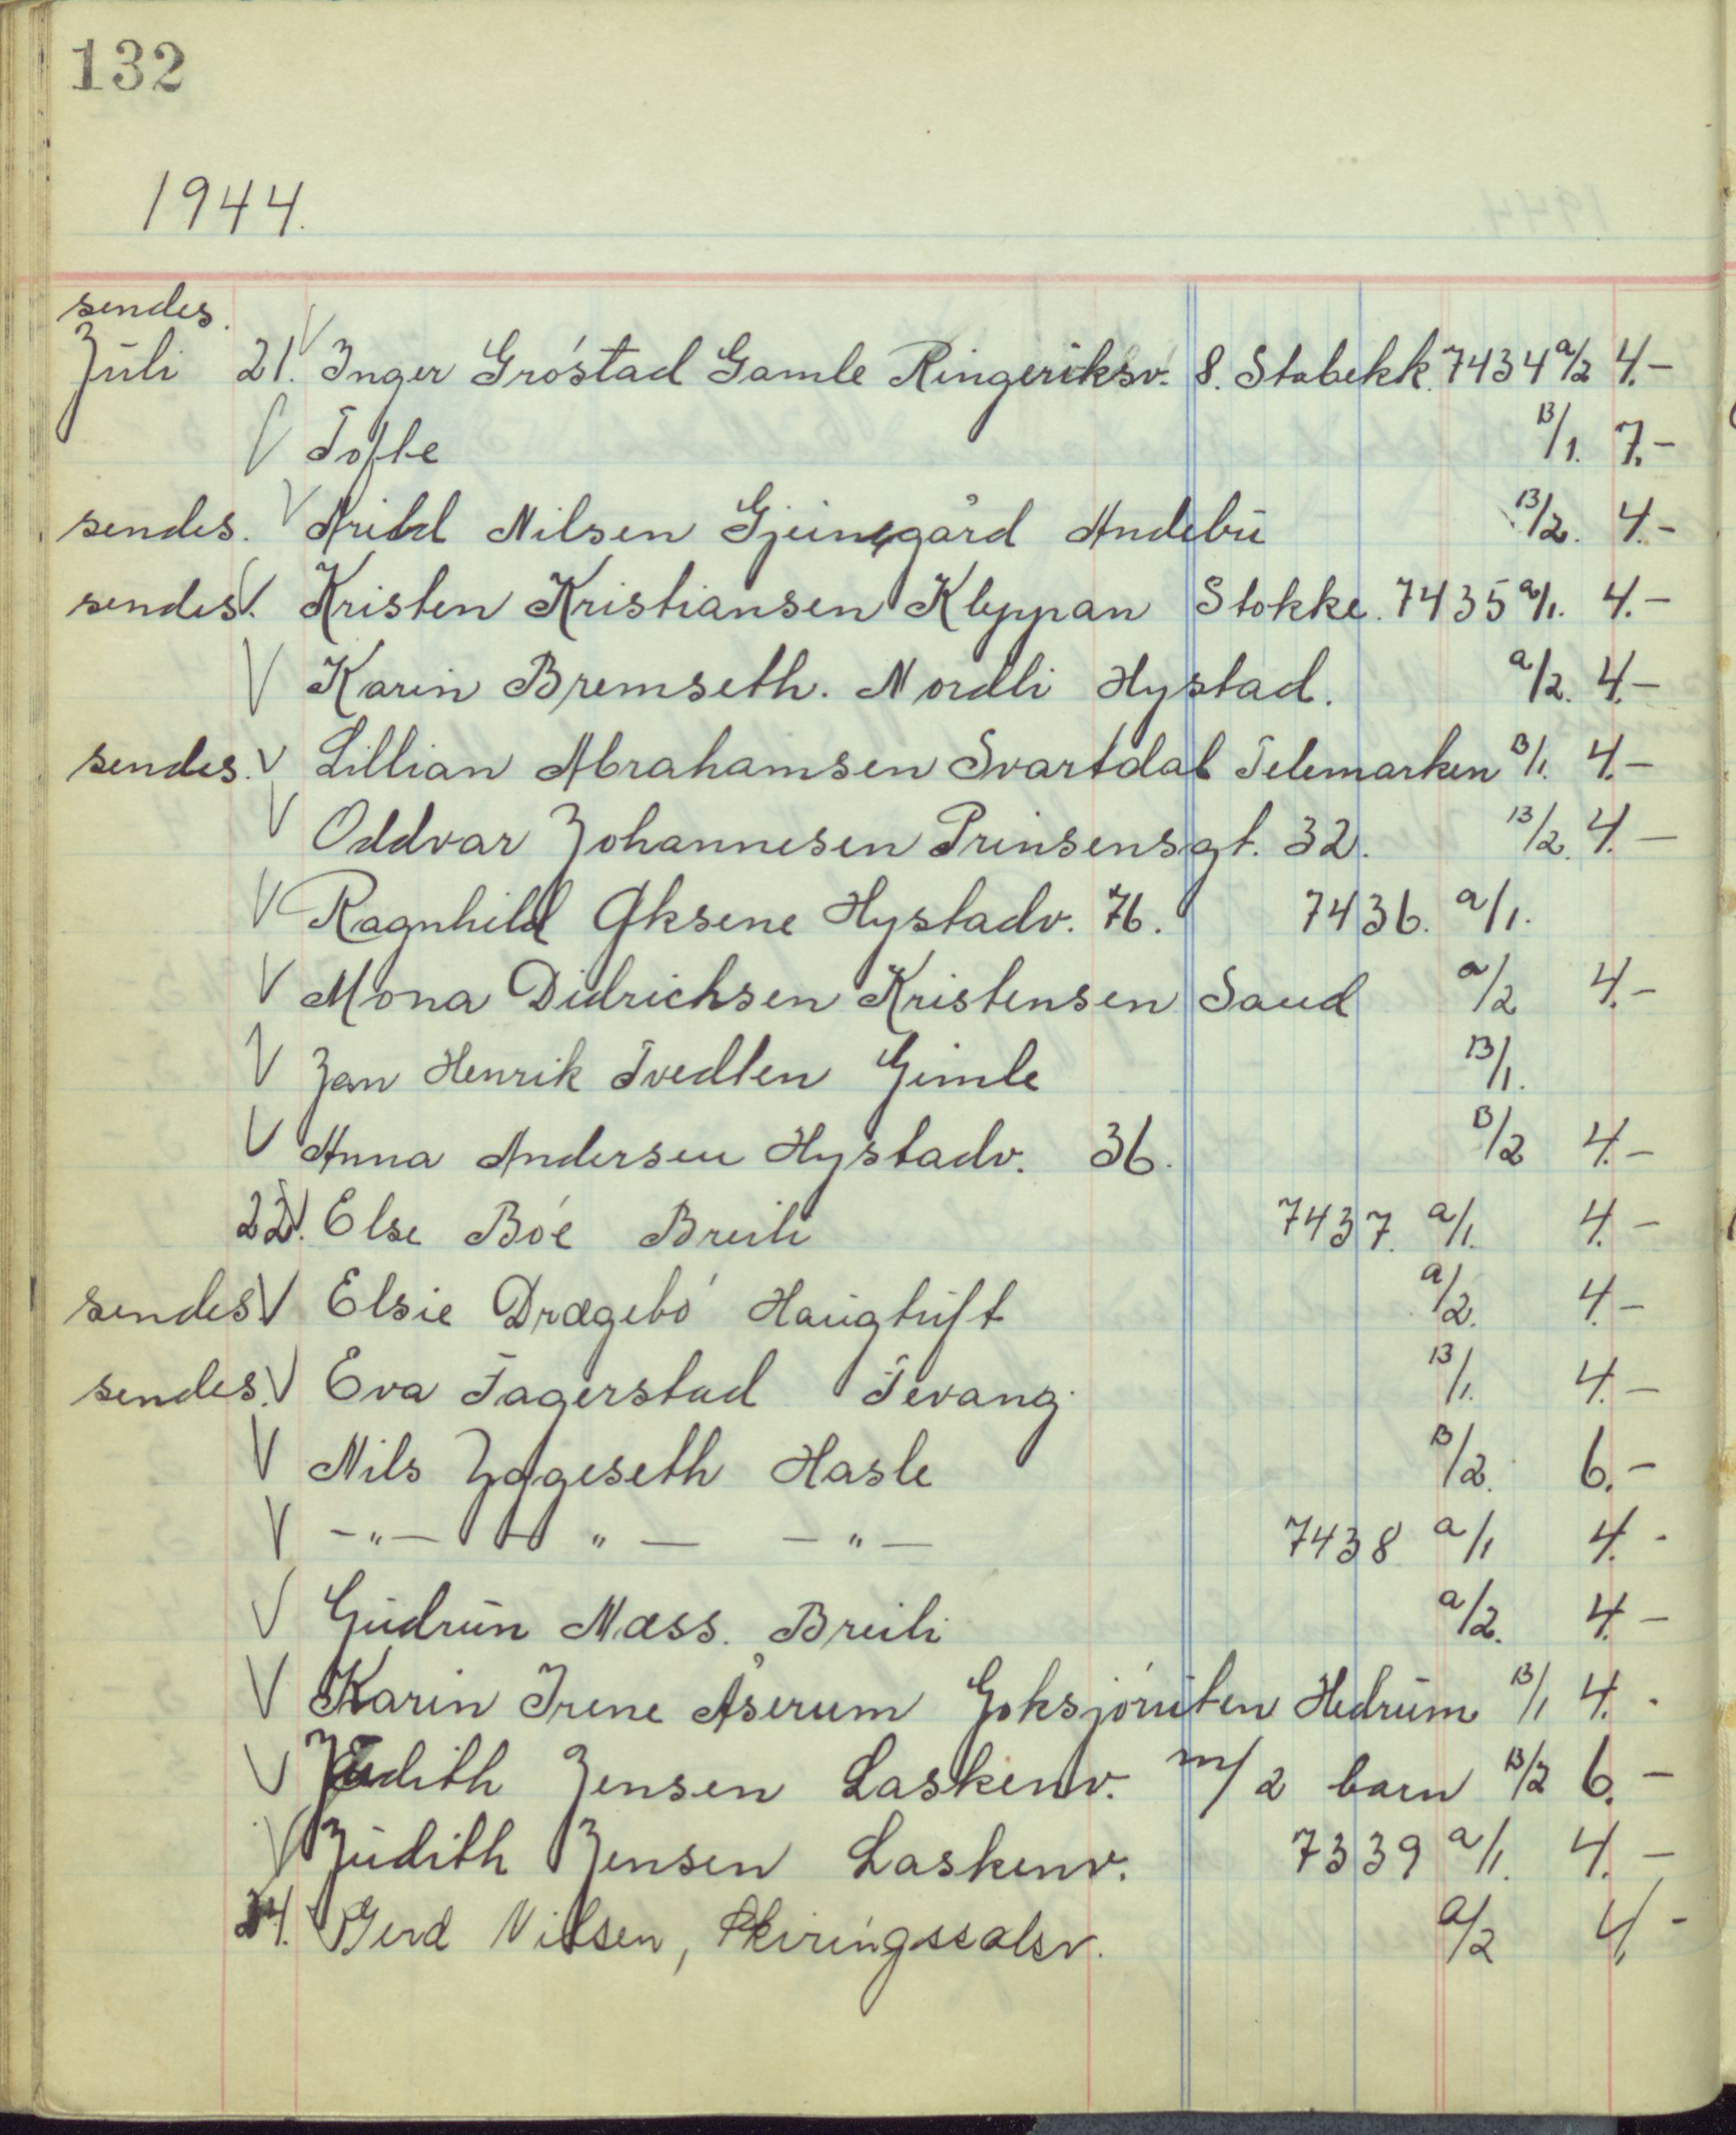 132
1944.
sendes.
Juli 21. V Inger Gróstad Gamle Ringeriksv. 8. Stabekk. 7434 a/2 4.-
V Tofte B/1. 7.-
sendes. V Arild Nilsen Gjeinsgård Andebu B/2. 4.-
sendes. V Kristen Kristiansen Kleppan Stokke. 7435 a/1. 4.-
V Karin Bremseth. Nordli Hystad. a/2. 4.-
sendes. V Lillian Abrahamsen Svartdal Telemarken B/1. 4.-
V Oddvar Johannesen Prinsensgt. 32. B/2. 4.-
V Ragnhild Oksene Hystadv. 76. 7436. a/1.
V Mona Didrichsen Kristensen Saud a/2 4.-
V Jan Henrik Tvedten Gimle B/1.
V Anna Andersen Hystadv. 36. B/2 4.-
22. V Else Bóe Breili 7437. a/1. 4.-
sendes V Elsie Drægebó Haugtuft a/2. 4.-
sendes. V Eva Fagerstad Tevang. B/1. 4.-
V Nils Yggeseth Hasle B/2. 6.-
V -"- - " - - " - 7438 a/1 4.-
V Gudrun Næss. Breili a/2. 4.-
V Karin Irene Åserum Goksjóruten Hedrum B/1 4.-
V Judith Jensen Laskenv. m/2 barn B/2 6.-
V Judith Jensen Laskenv. 7339 a/1. 4.-
24. V Gerd Nilsen, Skiringssalsv. a/2 4,-